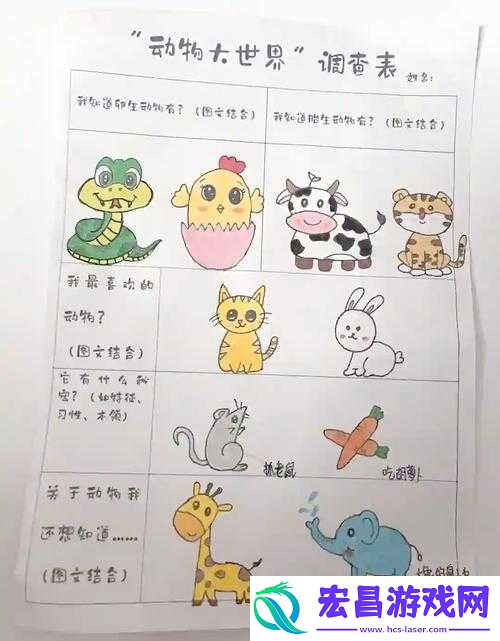 “动物大世界”调查表 姓名:
我知道卵生动物有? (图文结合)
我知道胎生动物有? (图文结合)
我最喜欢的
动物?
(图文结合)
它有什么秘
密? (如特征、
习性、本领)
抓老鼠
吃胡萝卜
关于动物我
还想知道……
(图文结合)
宏昌游戏网
https://m-hcs-laser.com